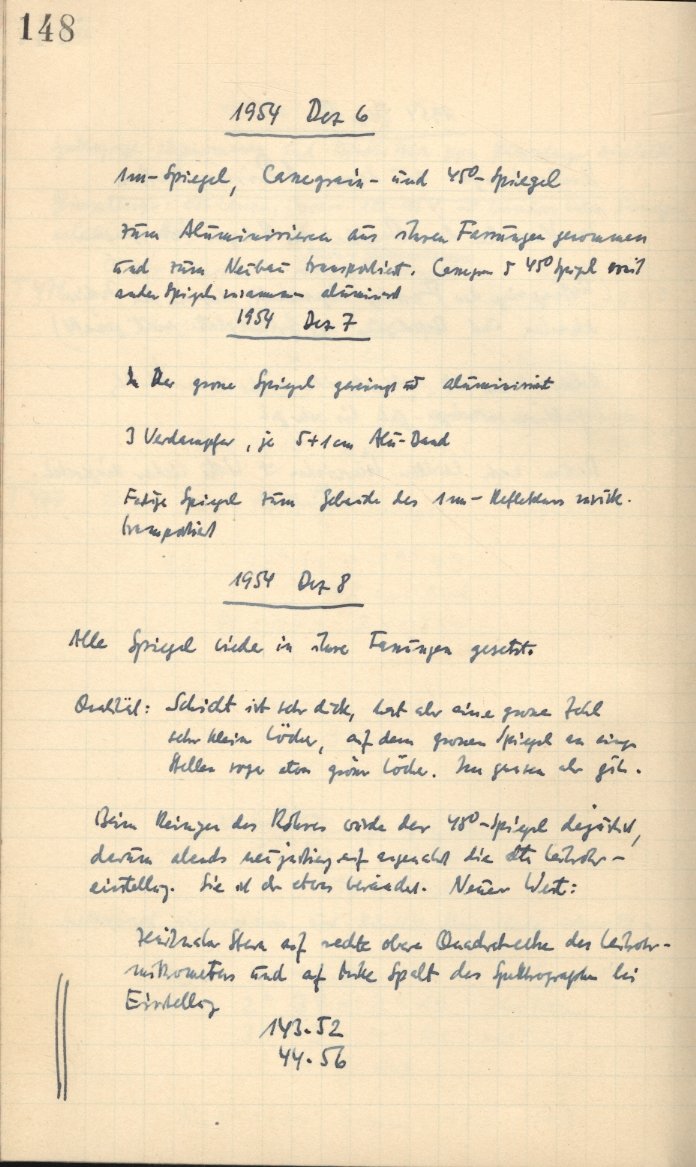 148
1954 Dez 6
1m-Spiegel, Cassegrain- und 45°-Spiegel
zum Aluminisieren aus ihren Fassungen genommen
und zum Neubau transportiert. Cassegr & 45° Spiegel mit
zusammen aluminisiert
1954 Dez 7
Der grosse Spiegel gereinigt und aluminisiert
3 Verdampfer, je 5+1cm Alu-Band
Fertige Spiegel zum Gebäude des 1m-Reflektors zurück-
transportiert
1954 Dez 8
Alle Spiegel wieder in ihre Fassungen gesetzt.
Qualität: Schicht ist sehr dick, hat aber eine grosse Zahl
sehr kleiner Löcher, auf dem grossen Spiegel an einigen
Stellen sogar etwas grössere Löcher. Im ganzen aber gut.
Beim Reinigen des Rohres wurde der 45°-Spiegel dejustiert,
darum abends neu justiert auf die alte Leitrohr-
einstellung. Sie ist etwas verändert. Neuer Wert:
Stern auf rechte obere Quadratecke des Leitrohr-
mikrometers und auf Mitte Spalt des Spektrographen bei
Einstellung
143.52
44.56